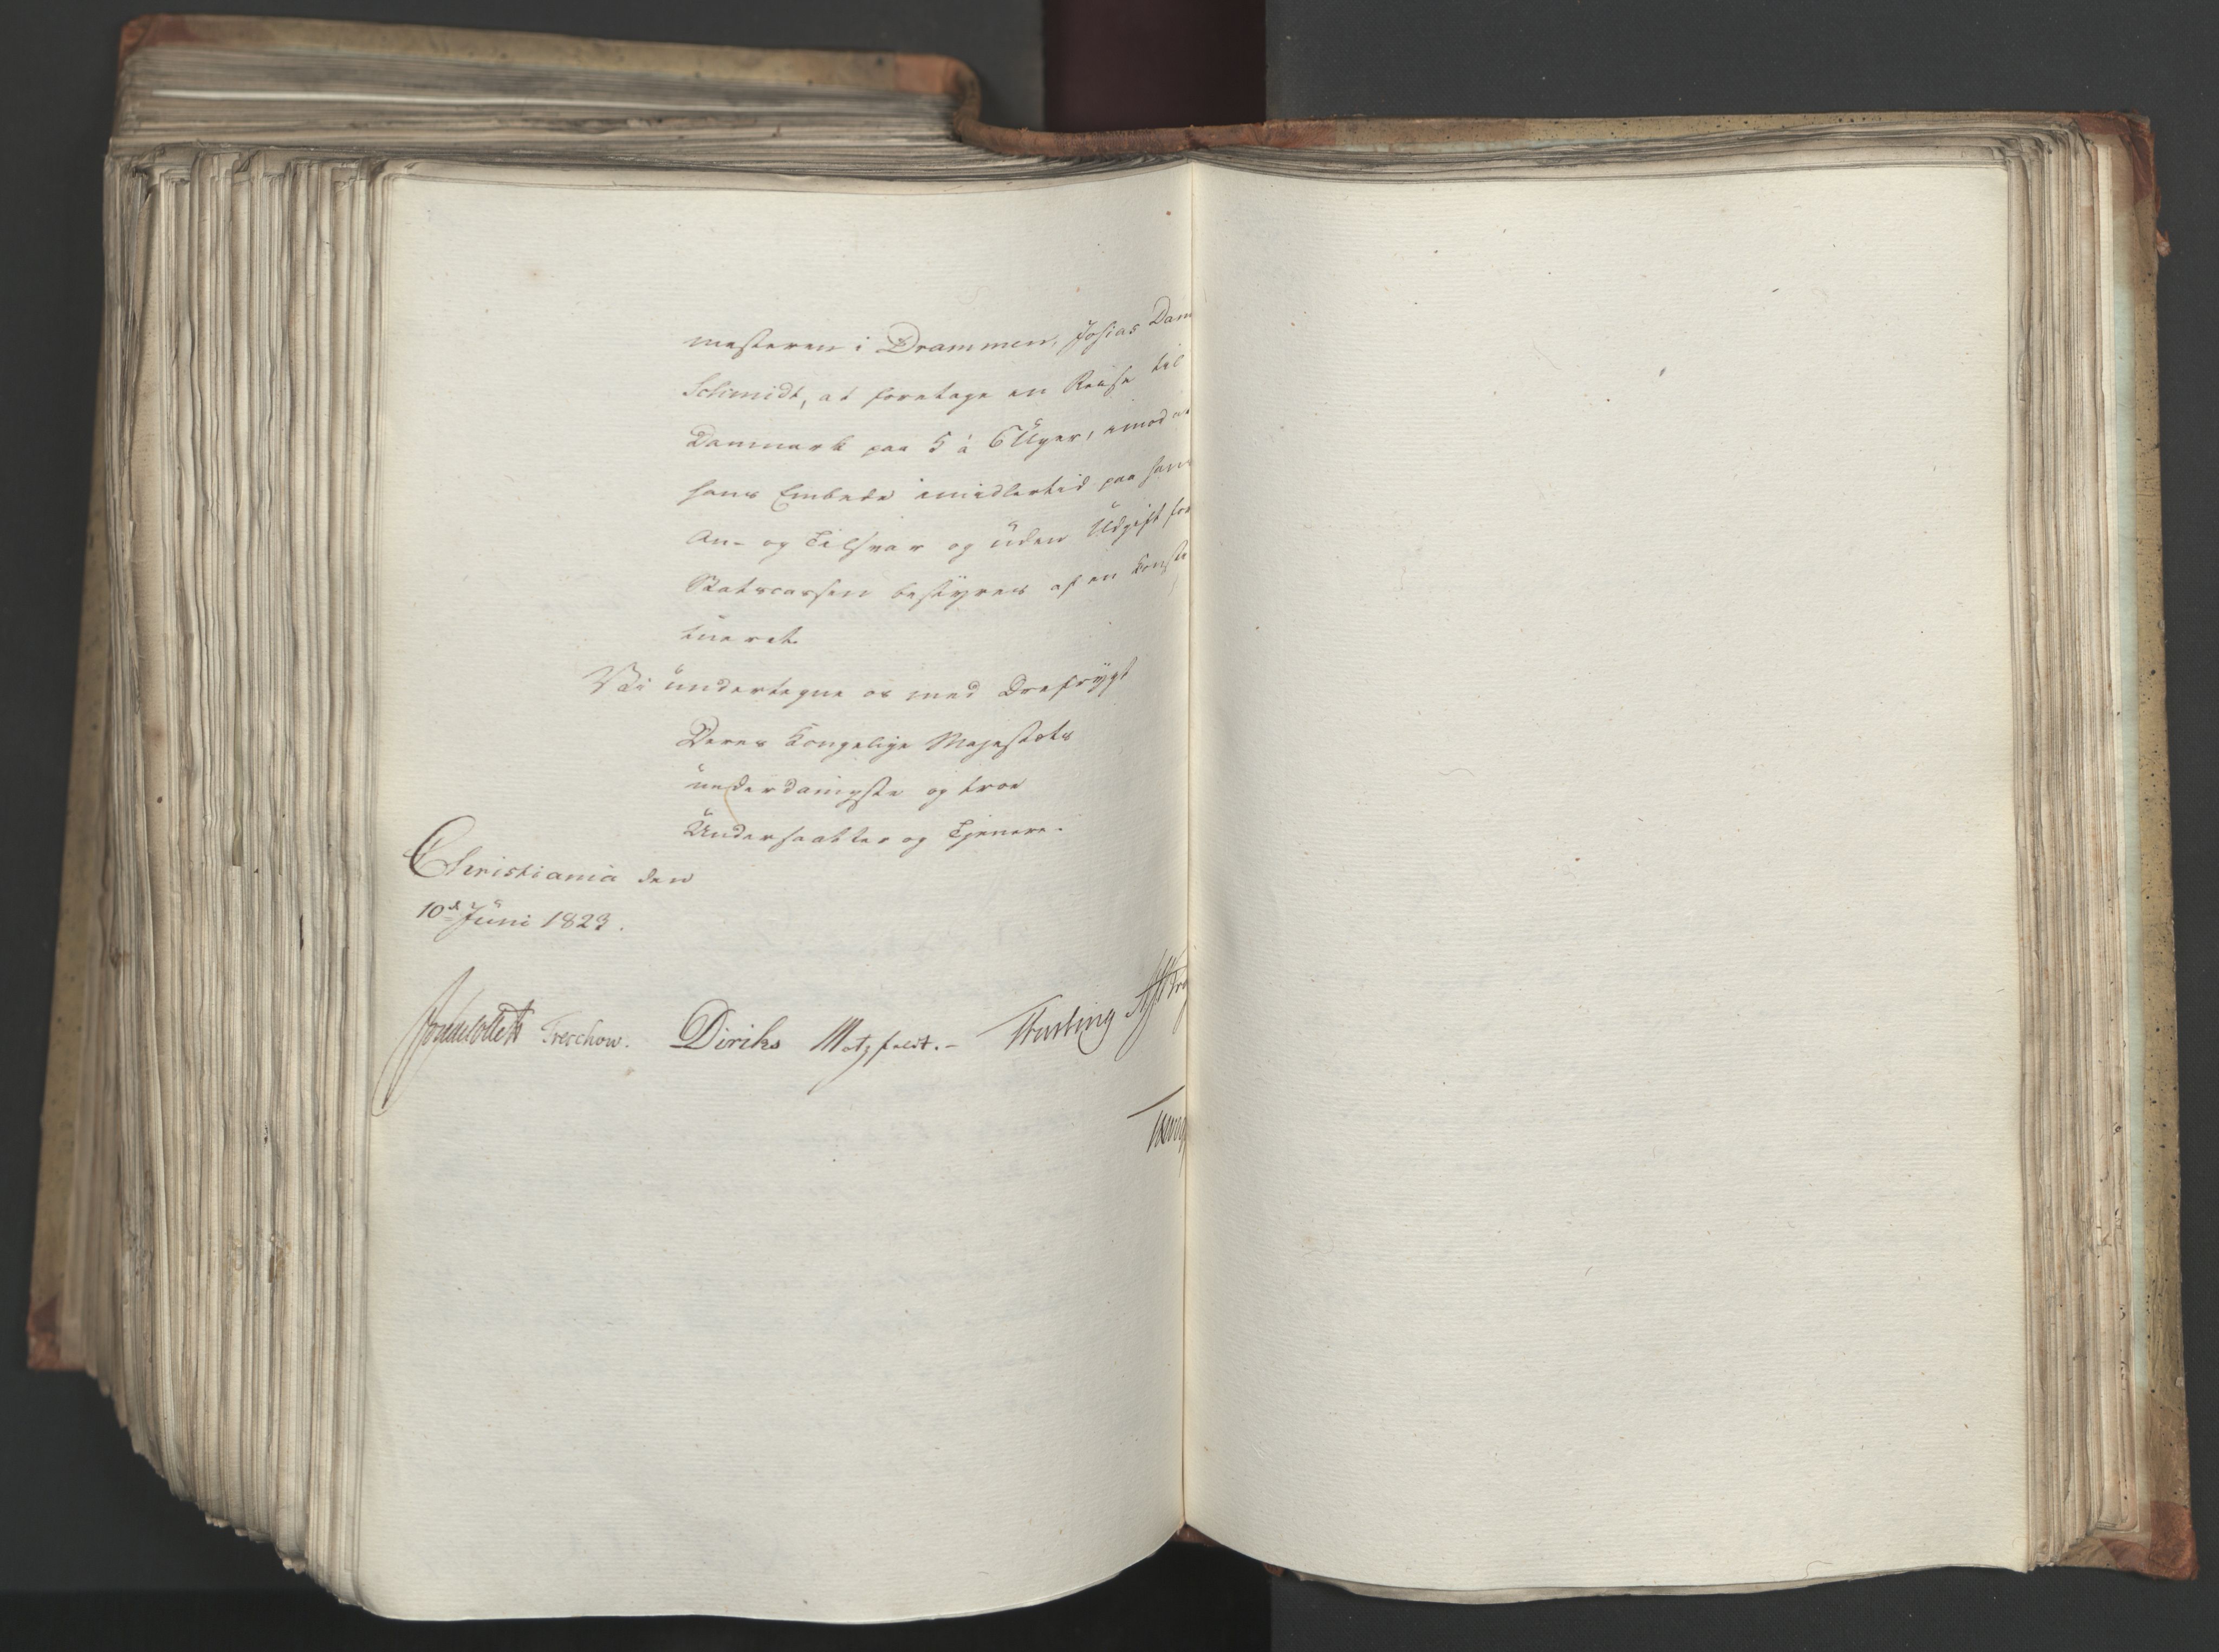 mesteren i Drammen, Josias Dam
Schmidt, at foretage en Reise til
Danmark paa 5 à 6 Uger, imod at
hans Embede imidlertid paa hans
An- og Tilsvar og uden Udgift for
Statscassen bestyres af en Consti
tueret.
Vi undertegne os med Ærefrygt
Deres Kongelige Majestæts
underdanigste og troe
Undersaatter og Tjenere.
Christiania den
10d Juni 1823.
Jonas Collett Treschow. Diriks Motzfeldt.-